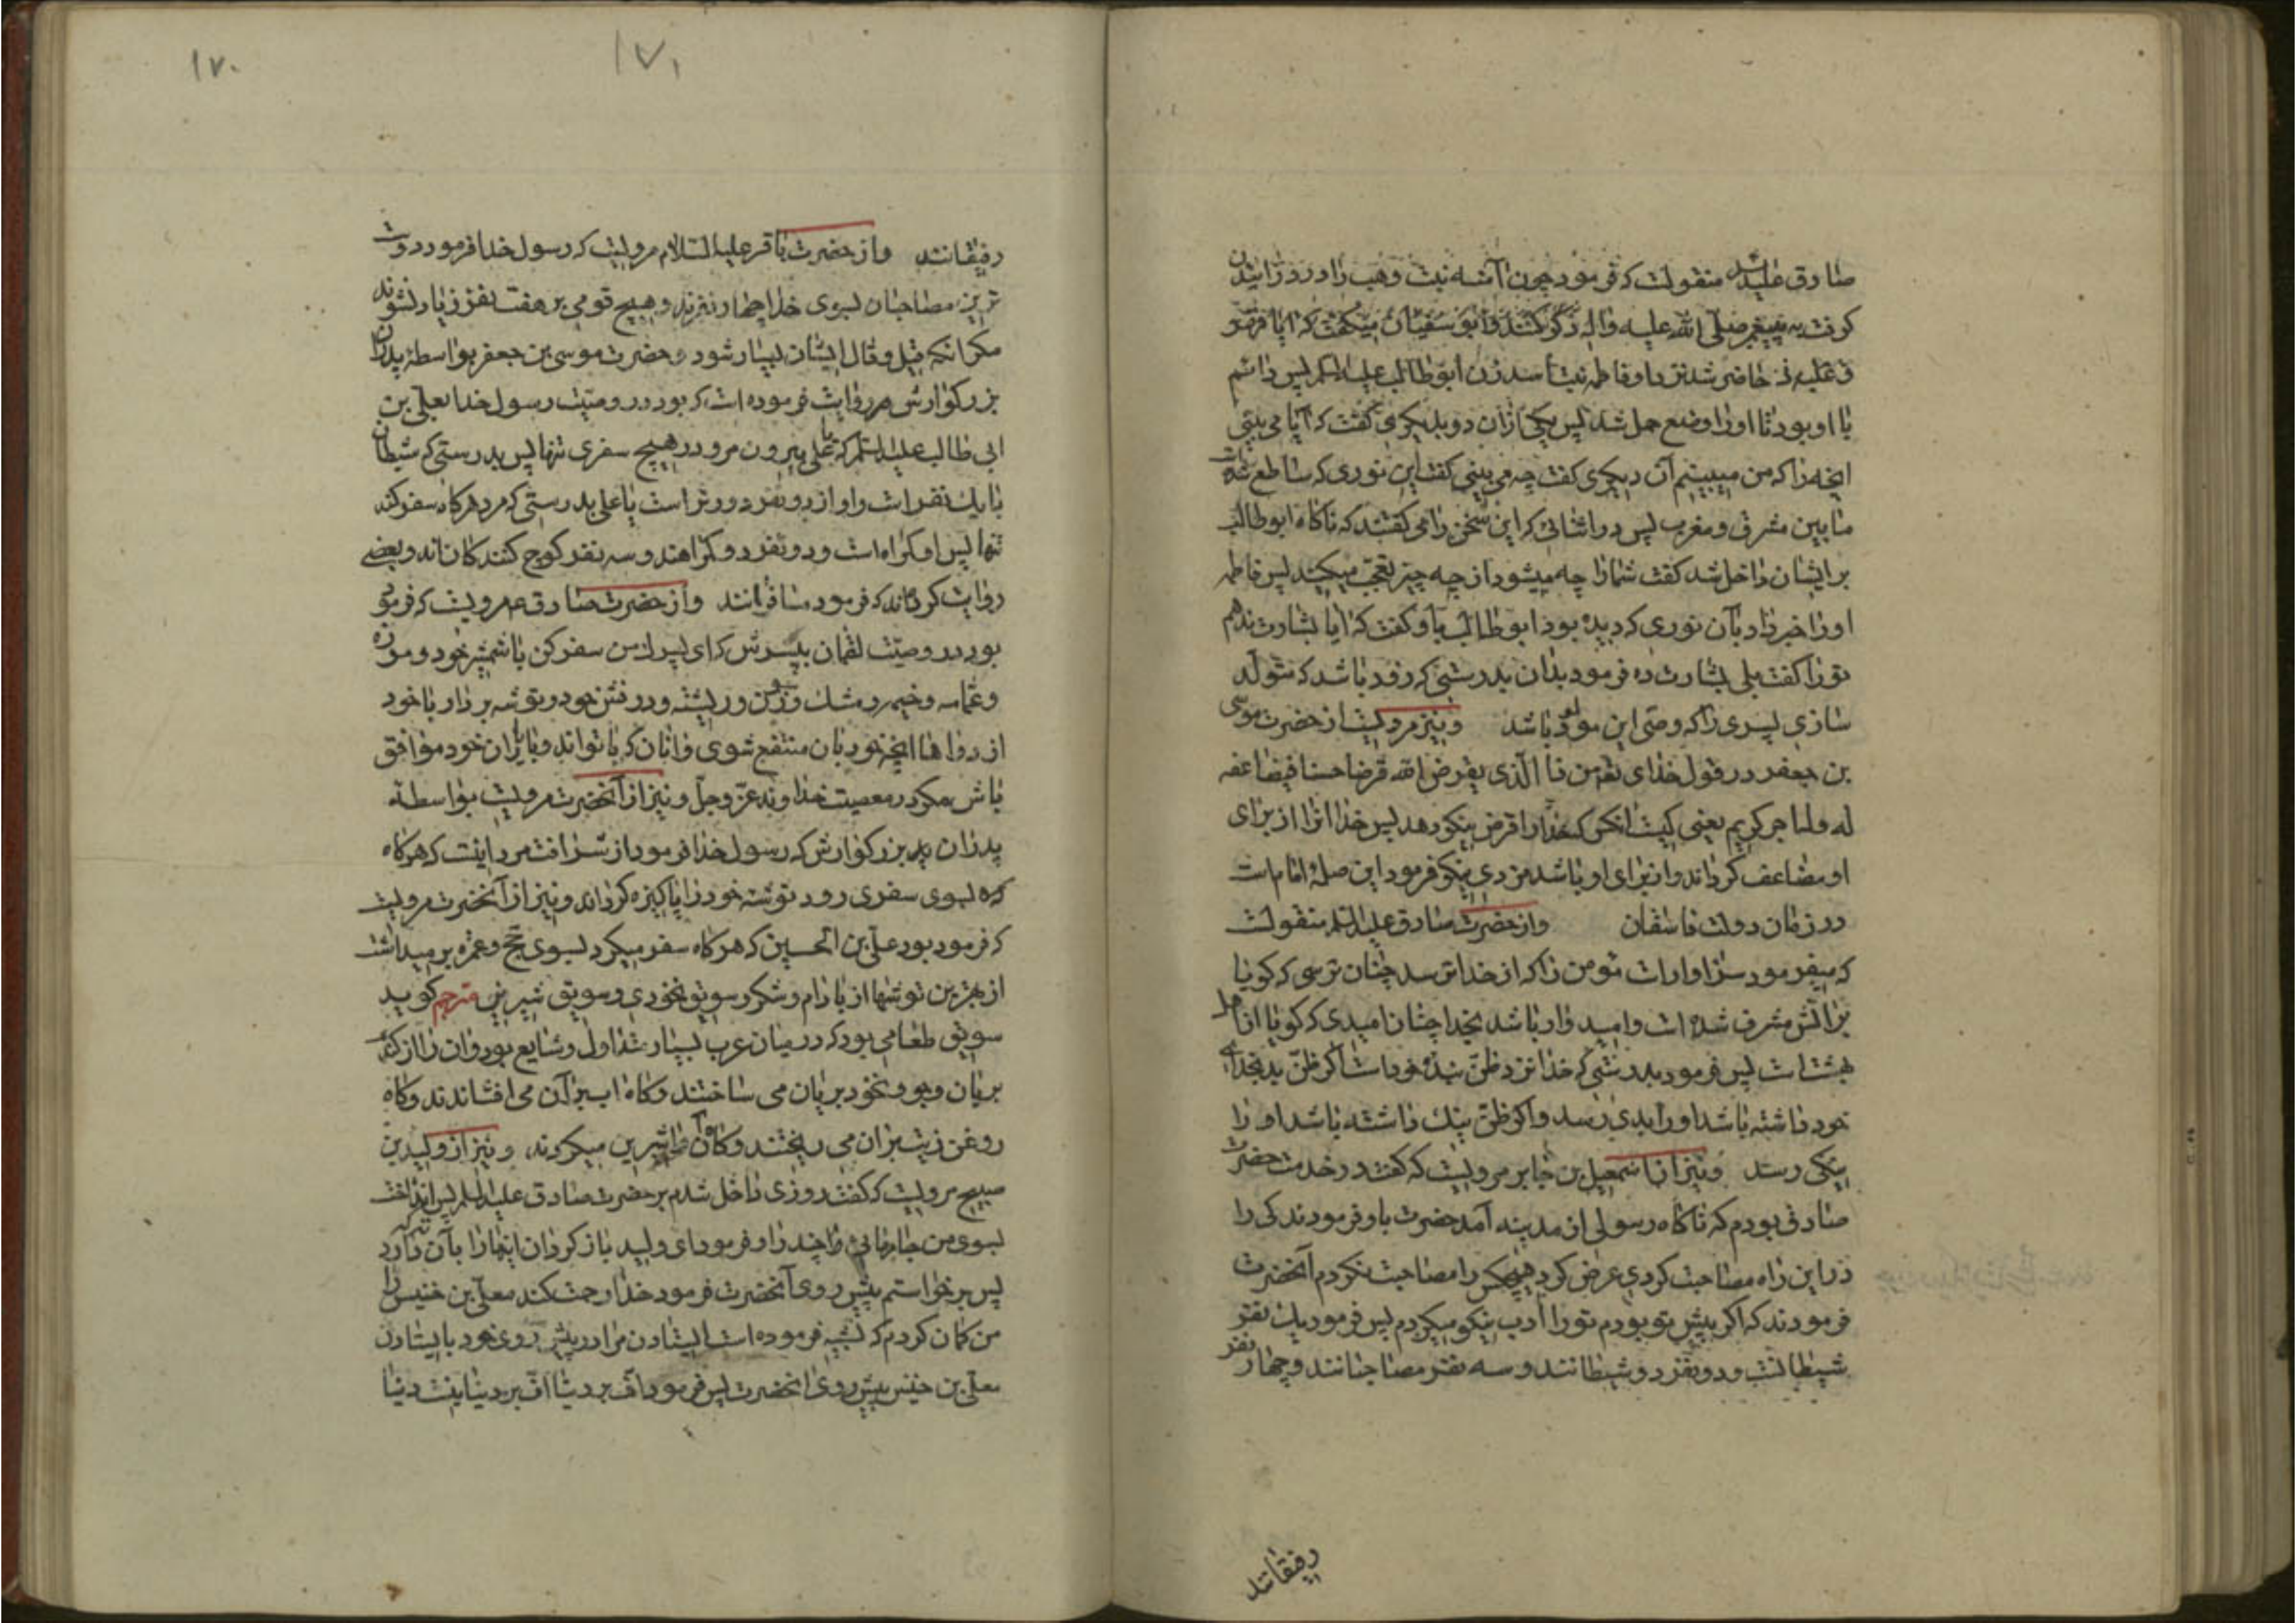 صادق علیه السلام منقولست که فرمود چون آمنه بنت وهب را درد زائیدن
کرفت به پیغمبر صلی الله علیه واله
و علیه نه حاضر شد نزد او فاطمه بنت اسد زن ابو طالب علیه السلم پس دائم
با او بود تا اورا وضع حمل شد پس یکی ازان دو بدیکری گفت که آیا می بینی
انچه را که من میبینم آن دیکری کفت چه می بینی کفت این نوری که ساطع شده است
مابین مشرق و مغرب پس در اثنائی که این سخن را می کفتند که ناکاه ابو طالب
برایشان داخل شد کفت شمارا چه میشود از چه چیز تعجب میکنید پس فاطمه
اورا خبر داد بآن نوری که دیده بود ابو طالب باو کفت که ایا بشارت ندهم
تورا کفت بلی بشارت ده فرمود بدان بدرستی که زود باشد که متولد
سازی پسری را که وصی این مولود باشد و نیز مرویست از حضرت موسی
بن جعفر در قول خدای تعه من ذا الذی یقرض الله قرضا حسنا فیضاعفه
له وله اجر کریم یعنی کیست انکس که خدا را قرض نیکو دهد پس خدا انرا از برای
او مضاعف کرداند و از برای او باشد مزدی نیکو فرمود این صلهٔ امام است
در زمان دولت فاسقان واز حضرت صادق علیه السلم منقولست
که میفرمود سزاوار است مومن را که از خدا ترسد چنان ترسی که کویا
بر آتش مشرف شده است و امید وار باشد بخدا چنان امیدی که کویا از اهل
بهشت است پس فرمود بدرستی که خدا نزد ظن بندهٔ خود است اکر ظن بد بخدای
خود داشته باشد اورا بدی رسد و اکر ظن نیک داشته باشد اورا
نیکی رسد و نیز از اسمعیل بن جابر مرویست که کفت در خدمت حضرت
صادق بودم که ناکاه رسولی از مدینه آمد حضرت باو فرمودند کی را
در این راه مصاحبت کردی عرض کرد هیچکس را مصاحبت نکردم آنحضرت
فرمودند که اکر پیش تو بودم تورا ادب نیکو میکردم پس فرمود یک نفر
شیطانست و دو نفر دو شیطانند و سه نفر مصاحبانند و چهار نفر
رفیقانند
۱۷۱
۱۷۰
رفیقانند واز حضرت باقر علیه السلام مرویست که رسول خدا فرمود دوست
ترین مصاحبان بسوی خدا چهار نفرند و هیچ قومی بر هفت نفر زیاد نشوند
مکر انکه قیل و قال ایشان بسیار شود و حضرت موسی بن جعفر بواسطهٔ پدران
بزرکوارش روایت فرموده است که بود در وصیت رسول خدا بعلی بن
ابی طالب علیه السلم که یا علی بیرون مرو در هیچ سفری تنها پس بدرستی که شیطان
با یک نفر است و او از دو نفر دورتر است یا علی بدرستی که مرد هر کاه سفر کند
تنها پس او کمراه است و دو نفر دو کمراهند و سه نفر کوچ کنندکان اند و بعضی
روایت کرده اند که فرمود مسافرانند واز حضرت صادق ع مرویست که فرمود
بود در وصیت لقمان به پسرش که ای پسرک من سفر کن با شمشیر خود و موزه
و عمامه و خیمه و مشک و سوزن و ریسمان و توشه بردار با خود
از دواها انچه خود بان منتفع شوی و انان که با تو اند و با یاران خود موافق
باش مکر در معصیت خداوند عز وجل و نیز از آنحضرت مرویست بواسطه
پدران بزرکوارش که رسول خدا فرمود از شرافت مرد اینست که هر کاه
که بسوی سفری رود توشه خود را پاکیزه کرداند و نیز از آنحضرت مرویست
که فرمود بود علی بن الحسین که هر کاه سفر میکرد بسوی حج و عمره بر میداشت
از بهترین توشها از بادام و شکر و سویق نخودی و سویق شیرین مترجم کوید
سویق طعامی بود که در میان عرب بسیار متداول و شایع بود و ان را از کندم
بریان و جو و نخود بریان می ساختند و کاه اب بر آن می افشاندند و کاه
روغن زیت بران می ریختند و کاه آن را شیرین میکردند و نیز از ولید بن
صبیح مرویست که کفت روزی داخل شدم بر حضرت صادق علیه السلم پس انداخت
بسوی من جامهائی چند را و فرمود ای ولید باز کردان اینها را بآن
پس بر خواستم پیش روی آنحضرت فرمود خدا رحمت کند معلی بن خنیس را
من کمان کردم که تشبیه فرموده است ایستادن مرا در پیش روی خود بایستادن
معلی بن خنیس پیش روی انحضرت پس فرمود اف بر دنیا اف بر دنیا اینست دنیا